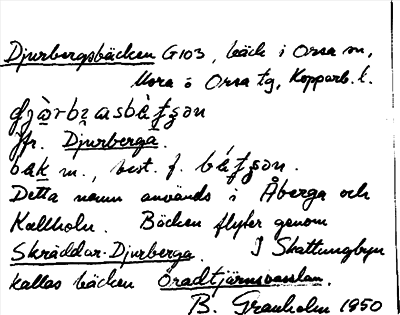 Djurbergsbäcken G103, bäck i Orsa sn,
Mora o Orsa tg, Kopparb. l.
Jfr. Djurberga.
m., best. f.
Detta namn används i Åberga och
Kallholn. Bäcken flyter genom
Skräddar-Djurberga. I Skattungbyn
kallas bäcken Oradtjärnsvasslan.
B. Granholm 1950